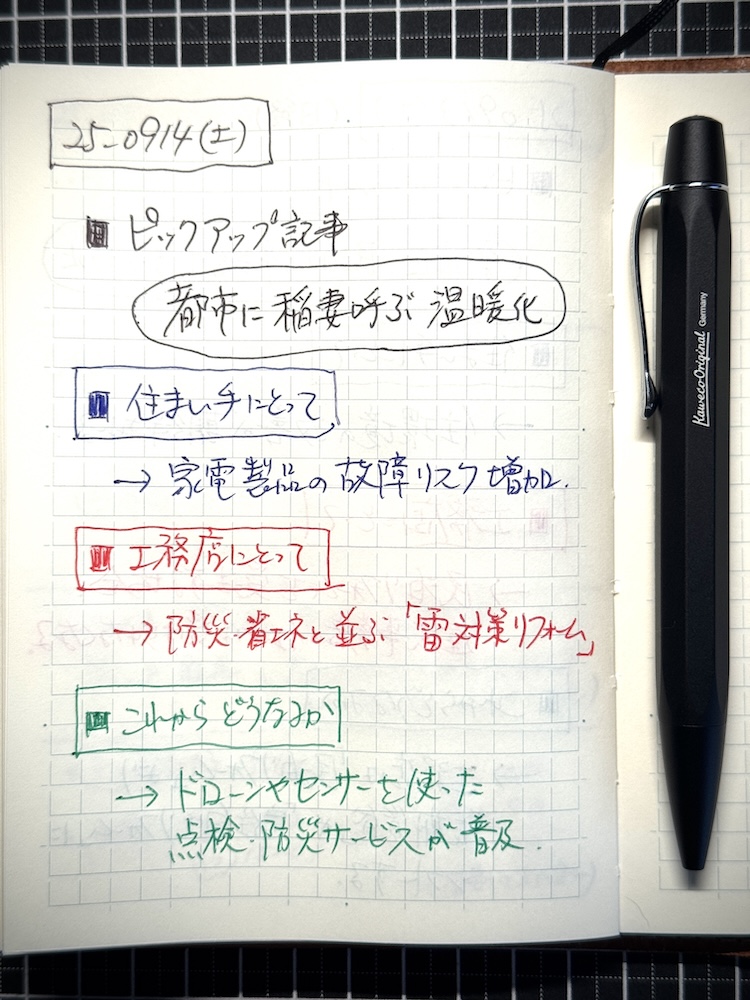 25-0914(土)
ピックアップ記事
都市に稲妻呼ぶ温暖化
住まい手にとって
→ 家電製品の故障リスク増加.
工務店にとって
→ 防災・省エネと並ぶ「雷対策リフォーム」
これからどうなるか
→ ドローンやセンサーを使った
点検・防災サービスが普及.
Kaweco Original Germany